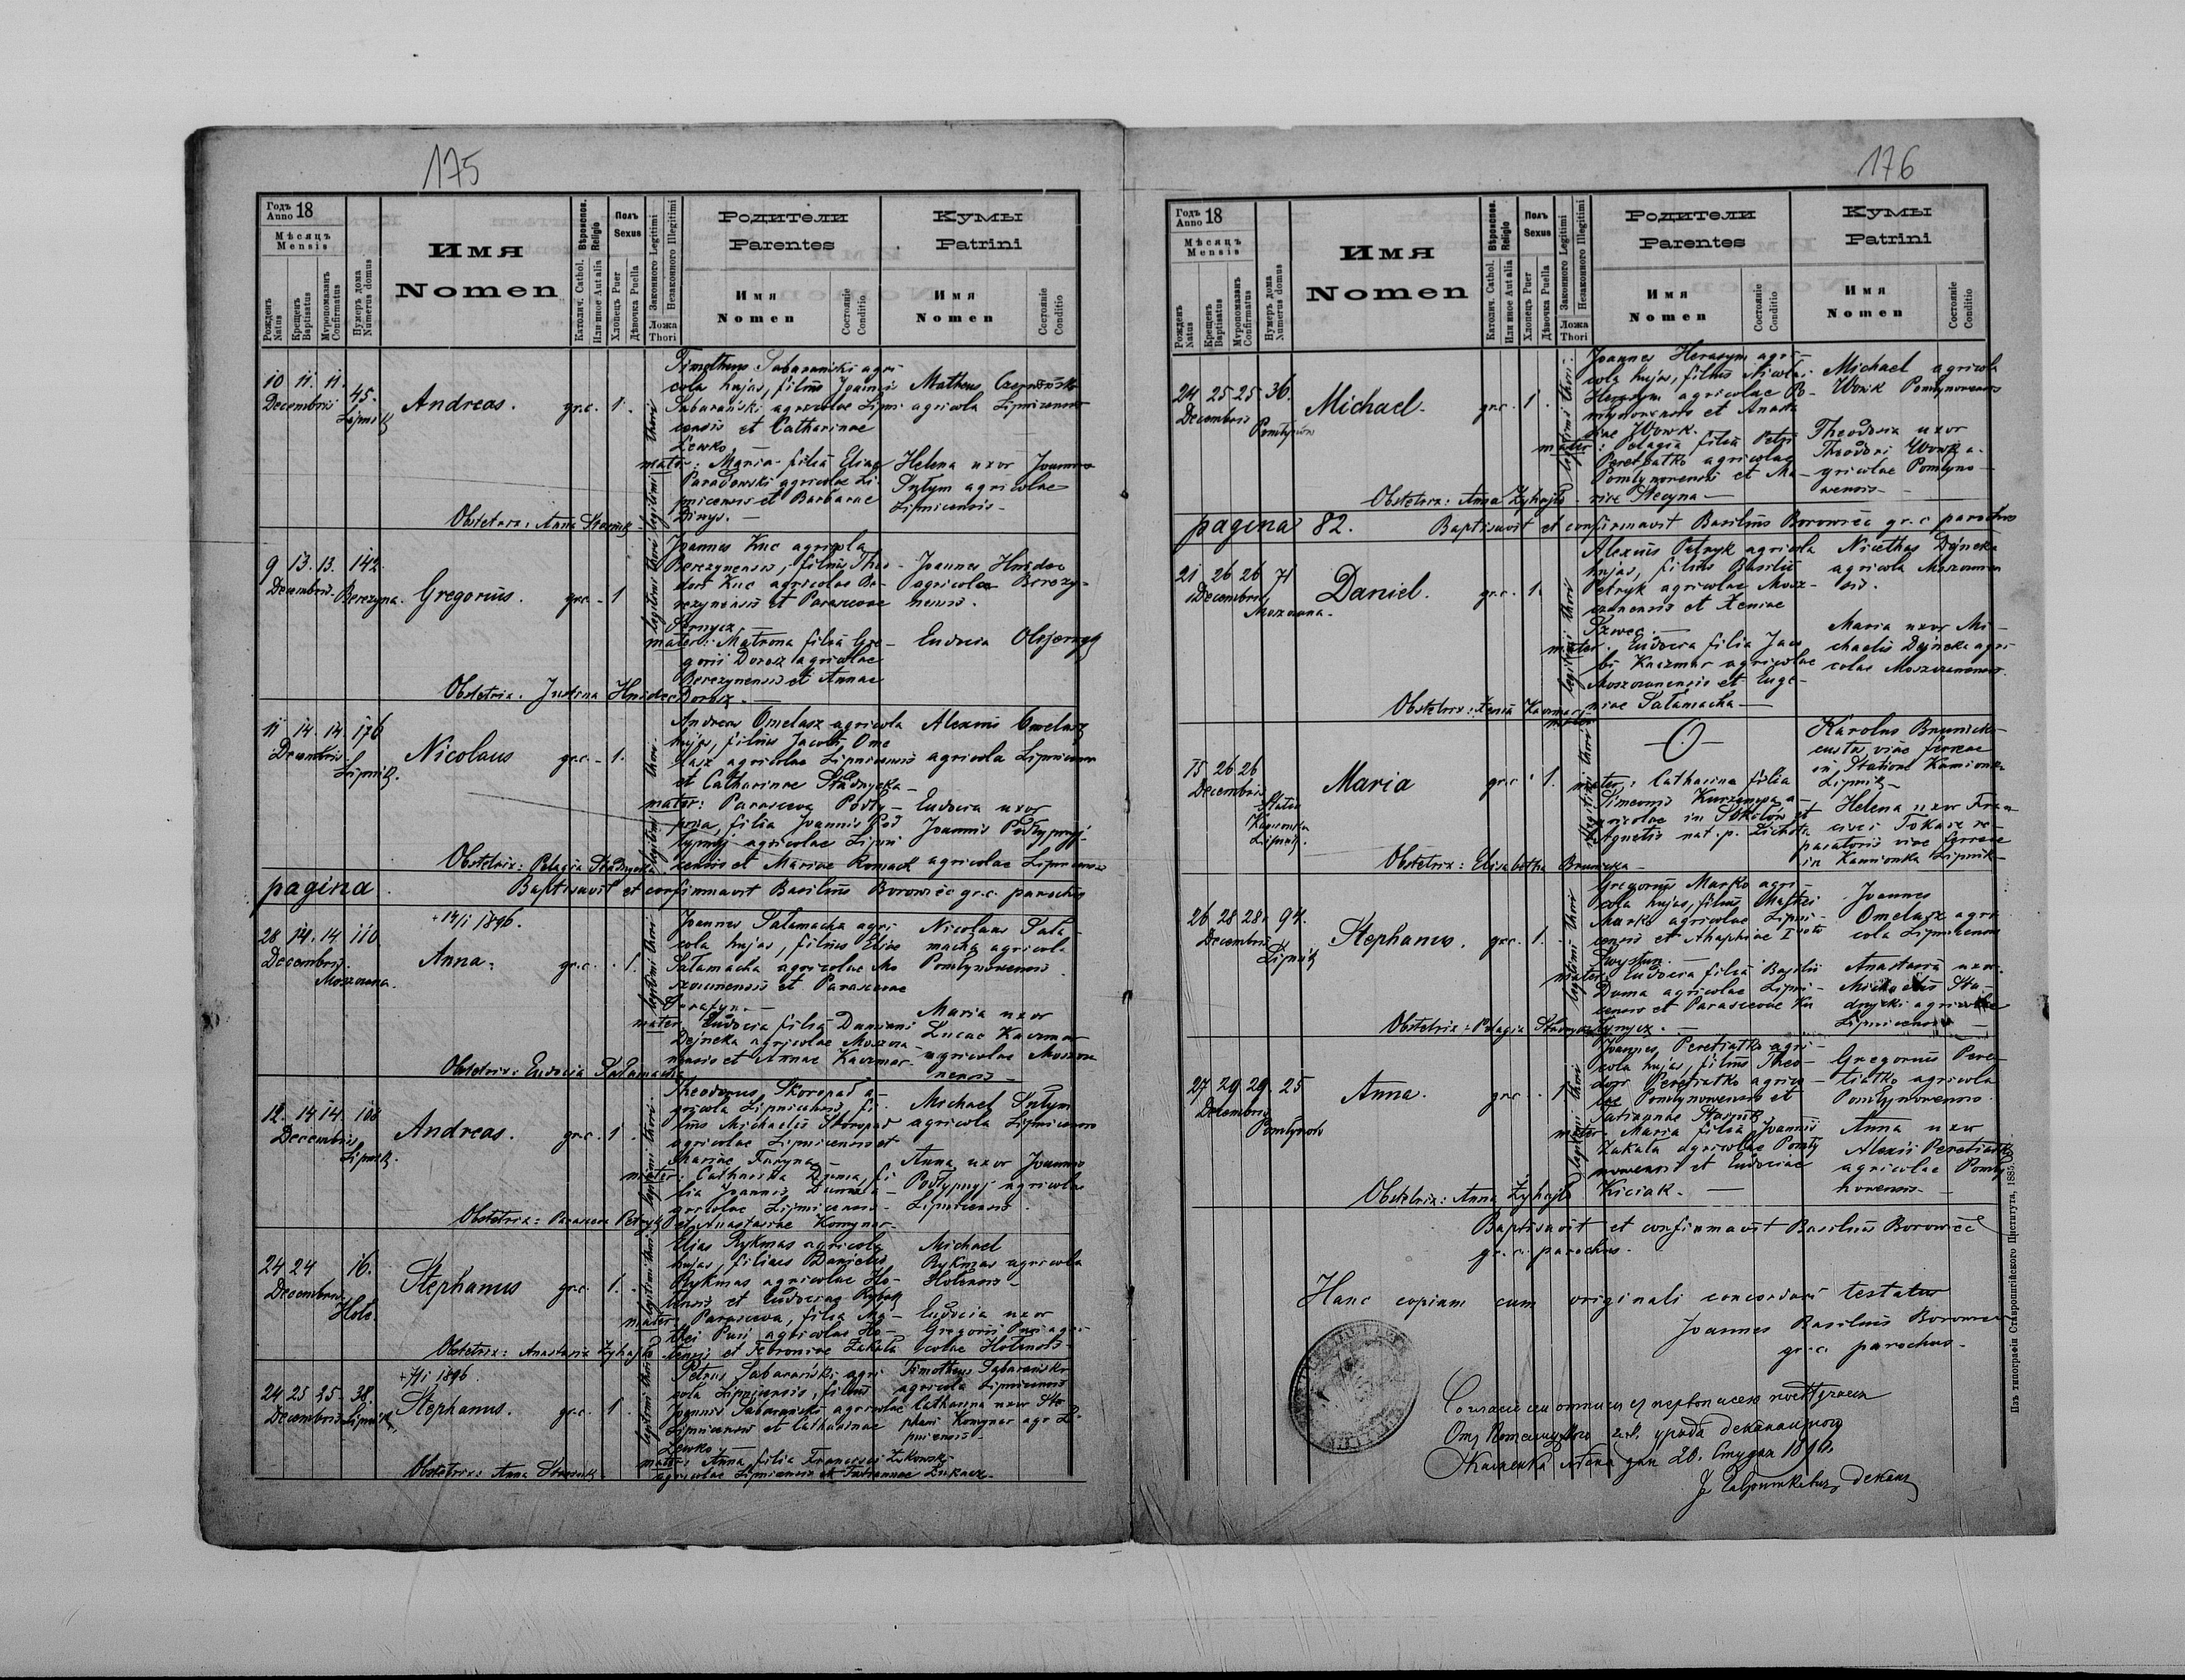 175
Годъ Anno 18
Мѣсяцъ Mensis
Рожденъ Natus
Крещенъ Baptisatus
Мѵропомазанъ Confirmatus
Нумеръ дома Numerus domus
Имя
Nomen
Вѣроисповѣд. Religio
Католич. Cathol.
Или иное Aut alia
Полъ Sexus
Хлопецъ Puer
Дѣвочка Puella
Законного Legitimi
Незаконного Illegitimi
Ложа Thori
Родители
Parentes
Имя Nomen
Состояніе Conditio
Кумы
Patrini
Имя Nomen
Состояніе Conditio
10 11. 11. 45.
Decembris Lipnik
Andreas. gr.c. 1.
legitimi thori
Timotheus Sabarański agri-
cola hujas, filius Joannis
Sabarański agricolae Lipni-
censis et Catharinae
Lewko
mater: Maria filia Eliae
Paradowski agricolae Li-
pnicensis et Barbarae
Dinys.
Matheus
agricola Lipnicensis
Helena uxor Joannis
Sałym agricolae
Lipnicensis
Obstetrix: Anna
9 13. 13. 142.
Decembris Berezyna.
Gregorius. gr.c. 1
legitimi thori
Joannes Kuc agricola
Berezynensis, filius Theo-
dori Kuc agricolae Be-
rezynensis et Parascevae
mater: Matrona filia Gre-
gorii Dorosz agricolae
Berezynensis et Annae
Dorosz.
Joannes Hnidec
agricola Berezy-
nensis.
Eudocia
Obstetrix. Justina Hnidec
11 14. 14. 176
Decembris Lipnik.
Nicolaus gr.c. 1.
legitimi thori.
Andreas Omelasz agricola
hujas, filius Jacobi Ome
lasz agricolae Lipnicensis
et Catharinae Stadnycka
mater: Parasceva Podty-
pna, filia Joannis Pod
typnyj agricolae Lipni
censis et Mariae Romach
Alexius Omelasz
agricola Lipnicensis
Eudocia uxor
Joannis Podtypnyj
agricolae Lipnicensis
Obstetrix: Pelagia Stadnycka
pagina. Baptisavit et confirmavit Basilius Borowiec gr.c. parochus
28 14. 14 110.
Decembris. Moszczana.
+14/1 1896.
Anna. gr.c. 1.
legitimi thori.
Joannes Sałamacha agri
cola hujas, filius Eliae
Sałamacha agricolae Mo
szczanensis et Parascevae
mater Eudocia filia Damiani
Dejneka agricolae Moszcza-
nensis et Annae Kaczmar-
Nicolaus Sała-
macha agricola
Pomłynowensis
Maria uxor
Lucae Kaczmar
agricolae Moszcza
nensis
Obstetrix: Eudocia Sałamacha
12. 14 14. 108
Decembris Lipnik.
Andreas. gr.c. 1.
legitimi thori.
Theodorus Skoropad a-
gricola Lipnicensis, fi-
lius Michaelis Skoropad
agricolae Lipnicensis et
Mariae Furyna
mater: Catharina Duma, fi
lia Joannis Duma a-
gricolae Lipnicensis
et Anastasiae Komynar
Michael Sałym
agricola Lipnicensis
Anna uxor Joannis
Podtypnyj agricolae
Lipnicensis.
Obstetrix: Parasceva Petryk
24 24 16.
Decembris Hole.
Stephanus gr.c. 1.
legitimi thori
Elias Rykmas agricola
hujas, filius Danielis
Rykmas agricolae Ho-
lensis et Eudociae
mater: Parasceva, filia
Pusi agricolae Ho-
lensis et Febroniae Zakała
Michael
Rykmas agricola
Holensis
Eudocia uxor
Gregorii Pusi agri
colae Holensis
Obstetrix: Anastasia Zyhajło
24 25 25. 38.
Decembris Lipnik
+7/1 1896.
Stephanus. gr.c. 1
legitimi thori
Petrus Sabarański agri
cola Lipnicensis, filius
Joannis Sabarański agricolae
Lipnicensis et Catharinae
Lewko
mater: Anna filia Francisci Zukowski
agricolae Lipnicensis et Tatiannae Lukacz.
Timotheus Sabarański
agricola Lipnicensis
Catharina uxor Ste
phani Komynar agr Li-
pnicensis
Obstetrix: Anna
176
Годъ Anno 18
Мѣсяцъ Mensis
Рожденъ Natus
Крещенъ Baptisatus
Мѵропомазанъ Confirmatus
Нумеръ дома Numerus domus
Имя
Nomen
Вѣроисповѣд. Religio
Католич. Cathol.
Или иное Aut alia
Полъ Sexus
Хлопецъ Puer
Дѣвочка Puella
Законного Legitimi
Незаконного Illegitimi
Ложа Thori
Родители
Parentes
Имя Nomen
Состояніе Conditio
Кумы
Patrini
Имя Nomen
Состояніе Conditio
24 25 25 36.
Decembris Pomłynów
Michael. gr.c. 1.
legitimi thori.
Joannes Herasym agri-
cola hujas, filius Nicolai
Herasym agricolae Po-
młynowensis et Anasta
siae Wowk.
mater: Pelagia filia Petri
Peretiatko agricolae
Pomłynowensis et Ma-
riae Stecyna
Michael agricola
Wowk Pomłynowensis
Theodosia uxor
Theodori Wowk a-
gricolae Pomłyno-
wensis
Obstetrix: Anna Zyhajło
pagina 82. Baptisavit et confirmavit Basilius Borowiec gr.c. parochus
21 26 26 71
Decembris Moszczana.
Daniel. gr.c. 1.
legitimi thori
Alexius Petryk agricola
hujas, filius Basilii
Petryk agricolae Mosz-
czanensis et Xeniae
Szwec.
mater. Eudocia filia Jaco
bi Kaczmar agricolae
Moszczanensis et Euge-
niae Sałamacha
Nicethas Dejneka
agricola Moszczanen
sis.
Maria uxor Mi-
chaelis Dejneka agri
colae Moszczanensis.
Obstetrix: Xenia Kaczmar
15 26 26
Decembris Statio Kamionka Lipnik.
Maria gr.c. 1.
illegitimi thori
mater: Catharina filia
Simeonis a-
gricolae in Sokołów et
Agnetis nat. p.
Karolus Brunicki
custos viae ferreae
in Statione Kamionka
Lipnik
Helena uxor Fran
cisci Tokarz re-
paratoris viae ferreae
in Kamionka Lipnik
Obstetrix: Elisabetha Brunicka
26 28 28. 94.
Decembris Lipnik
Stephanus. gr.c. 1.
legitimi thori
Gregorius Marko agri-
cola hujas, filius Mathei
Marko agricolae Lipni-
censis et Ahaphiae I voti
Swystun.
mater: Eudocia filia Basilii
Duma agricolae Lipni-
censis et Parascevae
Joannes
Omelasz agri
cola Lipnicensis
Anastasia uxor
Michaelis Sta-
dnycki agricolae
Lipnicensis
Obstetrix: Pelagia
27 29 29. 25
Decembris Pomłynów
Anna. gr.c. 1
legitimi thori
Joannes Peretiatko agri-
cola hujas, filius Theo-
dori Peretiatko agrico-
lae Pomłynowensis et
Tatiannae
mater. Maria filia Joannis
Zakała agricolae Pomły
nowensis et Eudociae
Kiciak.
Gregorius Pere-
tiatko agricola
Pomłynowensis
Anna uxor
Alexii Peretiatko
agricolae Pomły
nowensis
Obstetrix: Anna Zyhajło
Baptisavit et confirmavit Basilius Borowiec
gr. c. parochus.
Hanc copiam cum originali concordari testatur
Joannes Basilius Borowiec
gr.c. parochus.
деканъ
Изъ типографіи Ставропигійского Института, 1885.